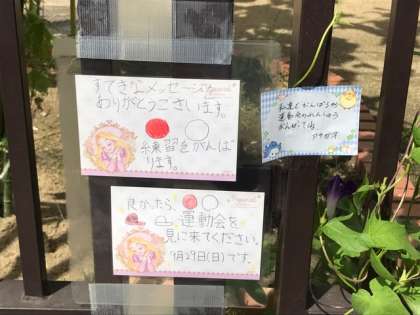 すてきなメッセージを
ありがとうございます。
練習をがんば
ります。
良かったら、
運動会を
見に来てください。
9月29日(日)です。
運動会のれんしゅう
がんばってね
アサガオ